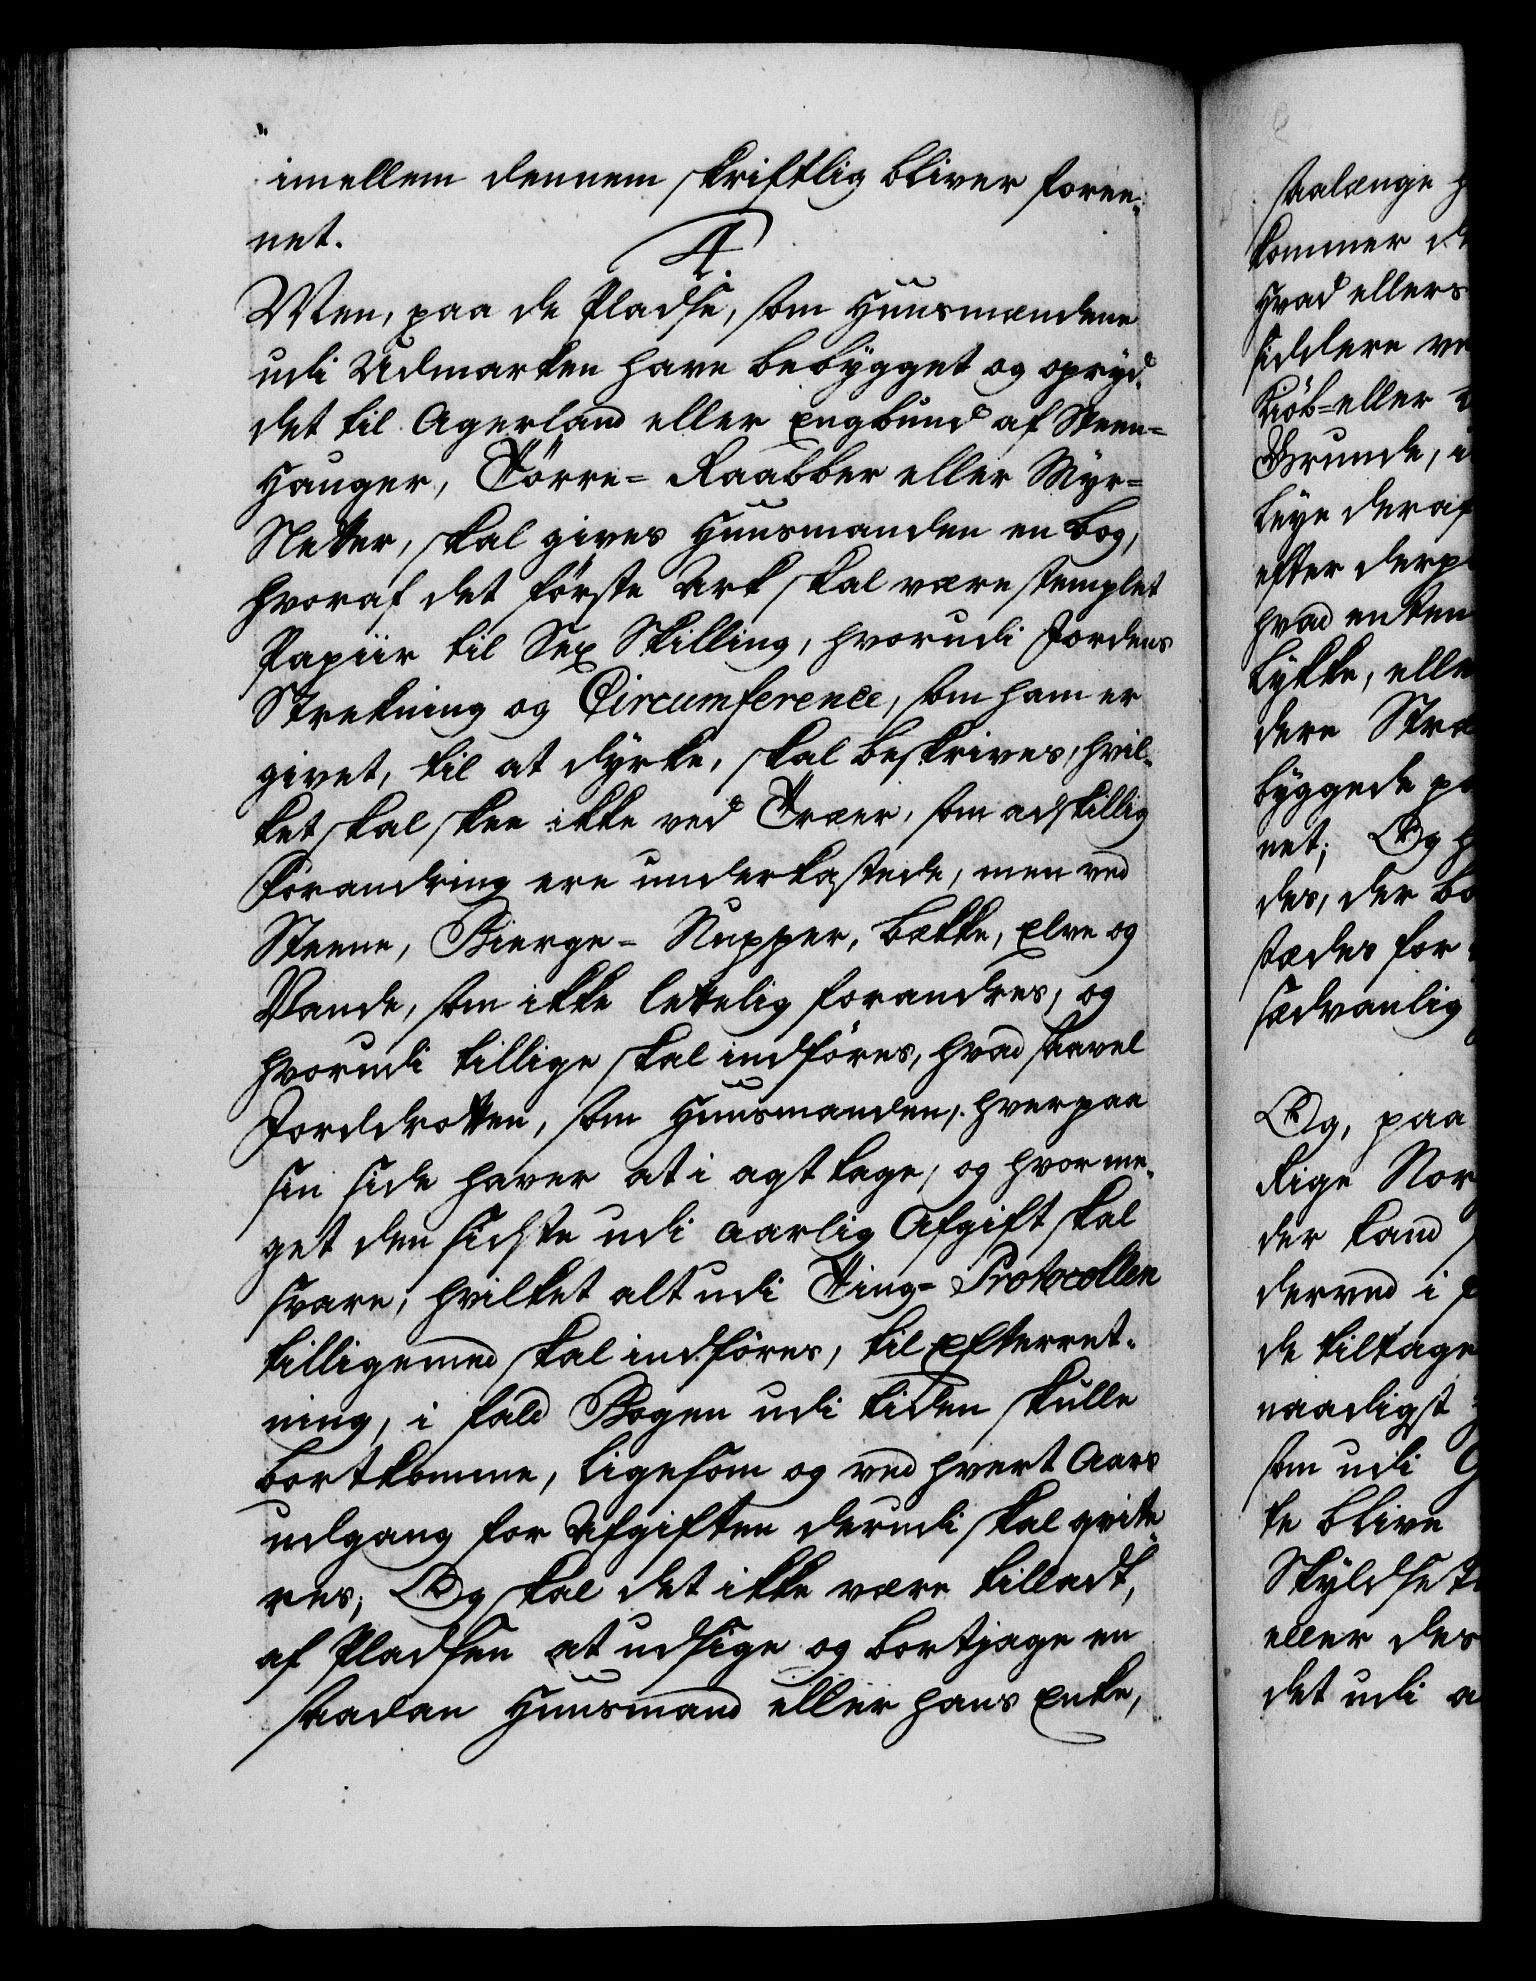 imellem dennem skriftlig bliver foree-
net.
4.
Men, paa de Pladse, som Huusmændene
udi Udmarken have bebygget og opryd-
det til Agerland eller Engbund af Steen-
Hauger, Törre- Raabber eller Myr-
Sletter, skal gives Huusmanden en bog,
hvoraf det förste Ark skal være stemplet
Papiir til Sex Skilling, hvorudi Jordens
Strekning og Circumference, som ham er
givet, til at dyrke, skal beskrives, hvil-
ket skal skee ikke ved Træer, som adskillig
Forandring ere underkastede, men ved
Steene, Bierge- Nupper, bekke, Elve og
Vande, som ikke lettelig forandres; og
hvorudi tillige skal indföres, hvad saavel
Jorddrotten, som Huusmanden, hver paa
sin side haver at i agt tage, og hvor me-
get den sidste udi aarlig Afgift skal
svare; hvilket alt udi Ting- Protocollen
tilligemed skal indföres, til Efterret-
ning, i fald Bogen udi tiden skulle
bortkomme, ligesom og ved hvert Aars
udgang for Afgiften derudi skal qvite-
res; Og skal det ikke være tilladt,
af Pladsen at udsige og bortjage en
saadan Huusmand eller hans Enke,
saalænge
kommer
Hvad ellers
siddere
Kiöb- eller
Grunde,
leye deraf
efter
hvad enten
lykke,
dere
byggede
net; Og
des, der
stædes for
sædvanlig
Og, paa
Rige
der kand
derved i
de tiltage
naadigst
som udi
te blive
eller des
det udi